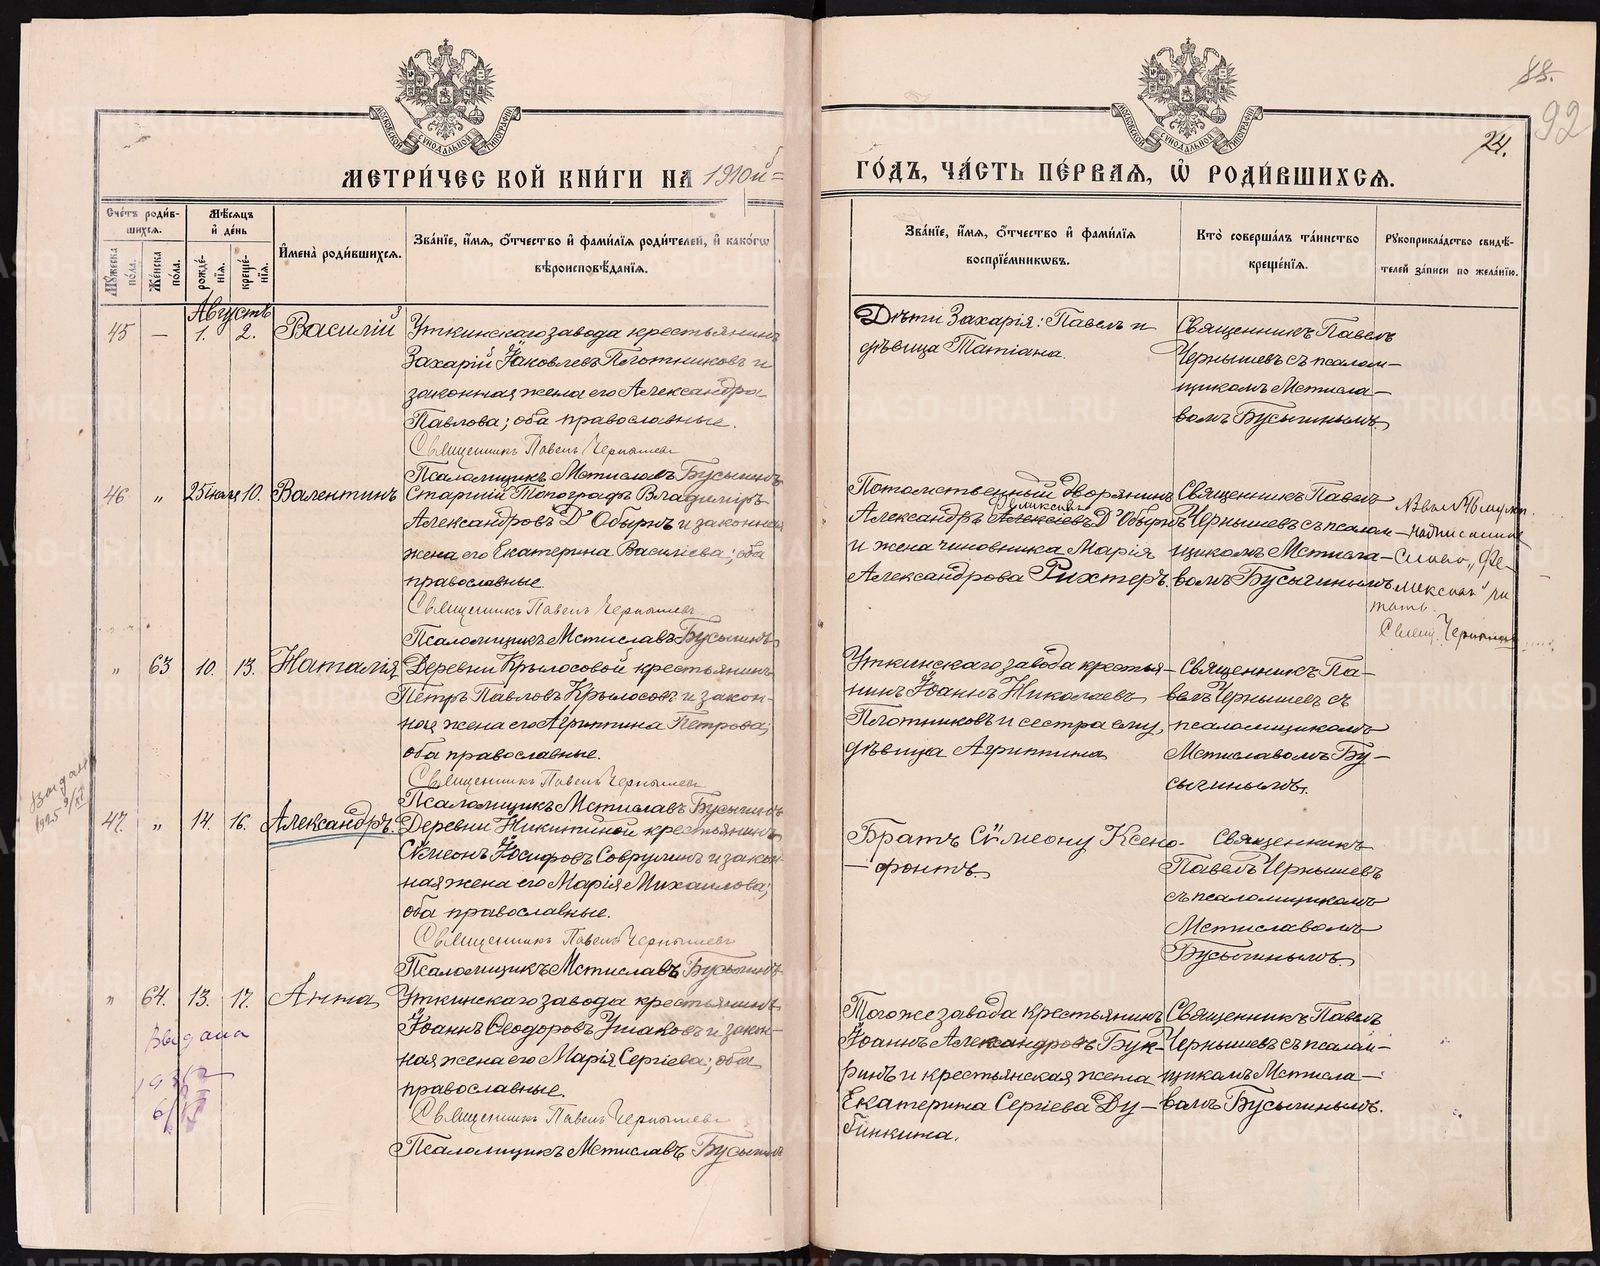 88.
92
24.
МОСКОВСКОЙ СѴНОДАЛЬНОЙ ТИПОГРАФІИ
МОСКОВСКОЙ СѴНОДАЛЬНОЙ ТИПОГРАФІИ
МЕТРИ́ЧЕСКОЙ КНИ́ГИ НА 1910й
ГО́ДЪ, ЧА́СТЬ ПЕ́РВАѦ, Ѡ҆ РОДИ́ВШИХСѦ.
Сче́тъ роди́в-
шихсѧ.
Мꙋ́жеска по́ла.
Же́нска по́ла.
Мѣ́сѧцъ
и҆ де́нь
рожде́-
нїѧ.
креще́-
нїѧ.
И҆мена̀ роди́вшихсѧ.
Зва́нїе, и҆́мѧ, ѻ҆́тчество и҆ фами́лїѧ роди́телей, и҆ како́гѡ
вѣроисповѣ́данїѧ.
Зва́нїе, и҆́мѧ, ѻ҆́тчество и҆ фами́лїѧ
воспрїе́мникѡвъ.
Кто̀ соверша́лъ та́инство
креще́нїѧ.
Рꙋкоприкла́дство свидѣ́-
телей за́писи по жела́нїю.
Августъ
45 — 1. 2. Василій
Уткинскаго завода крестьянинъ
Захарій Іаковлевъ Плотниковъ и
законная жена его Александра
Павлова; оба православные.
Священникъ Павелъ Чернышевъ
Псаломщикъ Мстиславъ Бусыгинъ
Дѣти Захарія: Павелъ и
дѣвица Татіана.
Священникъ Павелъ
Чернышевъ съ псалом-
щикомъ Мстисла-
вомъ Бусыгинымъ.
46 „ 25 іюля 10. Валентинъ
Старшій Топографъ Владиміръ
Александровъ Д'Обырнъ и законная
жена его Екатерина Василіева; оба
православные.
Священникъ Павелъ Чернышевъ
Псаломщикъ Мстиславъ Бусыгинъ
Потомственный дворянинъ
Феликсовъ
Александръ Алексѣевъ Д'Обырнъ
и жена чиновника Марія
Александрова Рихтеръ.
Священникъ Павелъ
Чернышевъ съ псалом-
щикомъ Мстисла-
вомъ Бусыгинымъ.
надписанное
слово „Фе-
ликсовъ" чи
тать.
Свящ. Чернышевъ
„ 63 10. 13. Наталія
Деревни Крылосовой крестьянинъ
Петръ Павловъ Крылосовъ и закон-
ная жена его Агриппина Петрова;
оба православные.
Священникъ Павелъ Чернышевъ
Псаломщикъ Мстиславъ Бусыгинъ
Уткинскаго завода крестья-
нинъ Іоаннъ Николаевъ
Плотниковъ и сестра ему,
дѣвица Агриппина
Священникъ Па-
велъ Чернышевъ съ
псаломщикомъ
Мстиславомъ Бу-
сыгинымъ.
Выдан
1925
47. „ 14. 16. Александръ.
Деревни Никитиной крестьянинъ
Сѵмеонъ Іосифовъ Соврулинъ и закон-
ная жена его Марія Михаилова;
оба православные.
Священникъ Павелъ Чернышевъ
Псаломщикъ Мстиславъ Бусыгинъ
Братъ Сѵмеону Ксено-
-фонтъ.
Священникъ
Павелъ Чернышевъ
съ псаломщикомъ
Мстиславомъ
Бусыгинымъ.
„ 64. 13. 17. Анна
Выдана
Уткинскаго завода крестьянинъ
Іоаннъ Ѳеодоровъ Ушаковъ и закон-
ная жена его Марія Сергіева; оба
православные.
Священникъ Павелъ Чернышевъ
Псаломщикъ Мстиславъ Бусыгинъ
Того же завода крестьянинъ
Іоаннъ Александровъ Бук-
ринъ и крестьянская жена
Екатерина Сергіева Ду-
бинкина.
Священникъ Павелъ
Чернышевъ съ псалом-
щикомъ Мстисла-
вомъ Бусыгинымъ.
METRIKI.GASO-URAL.RU